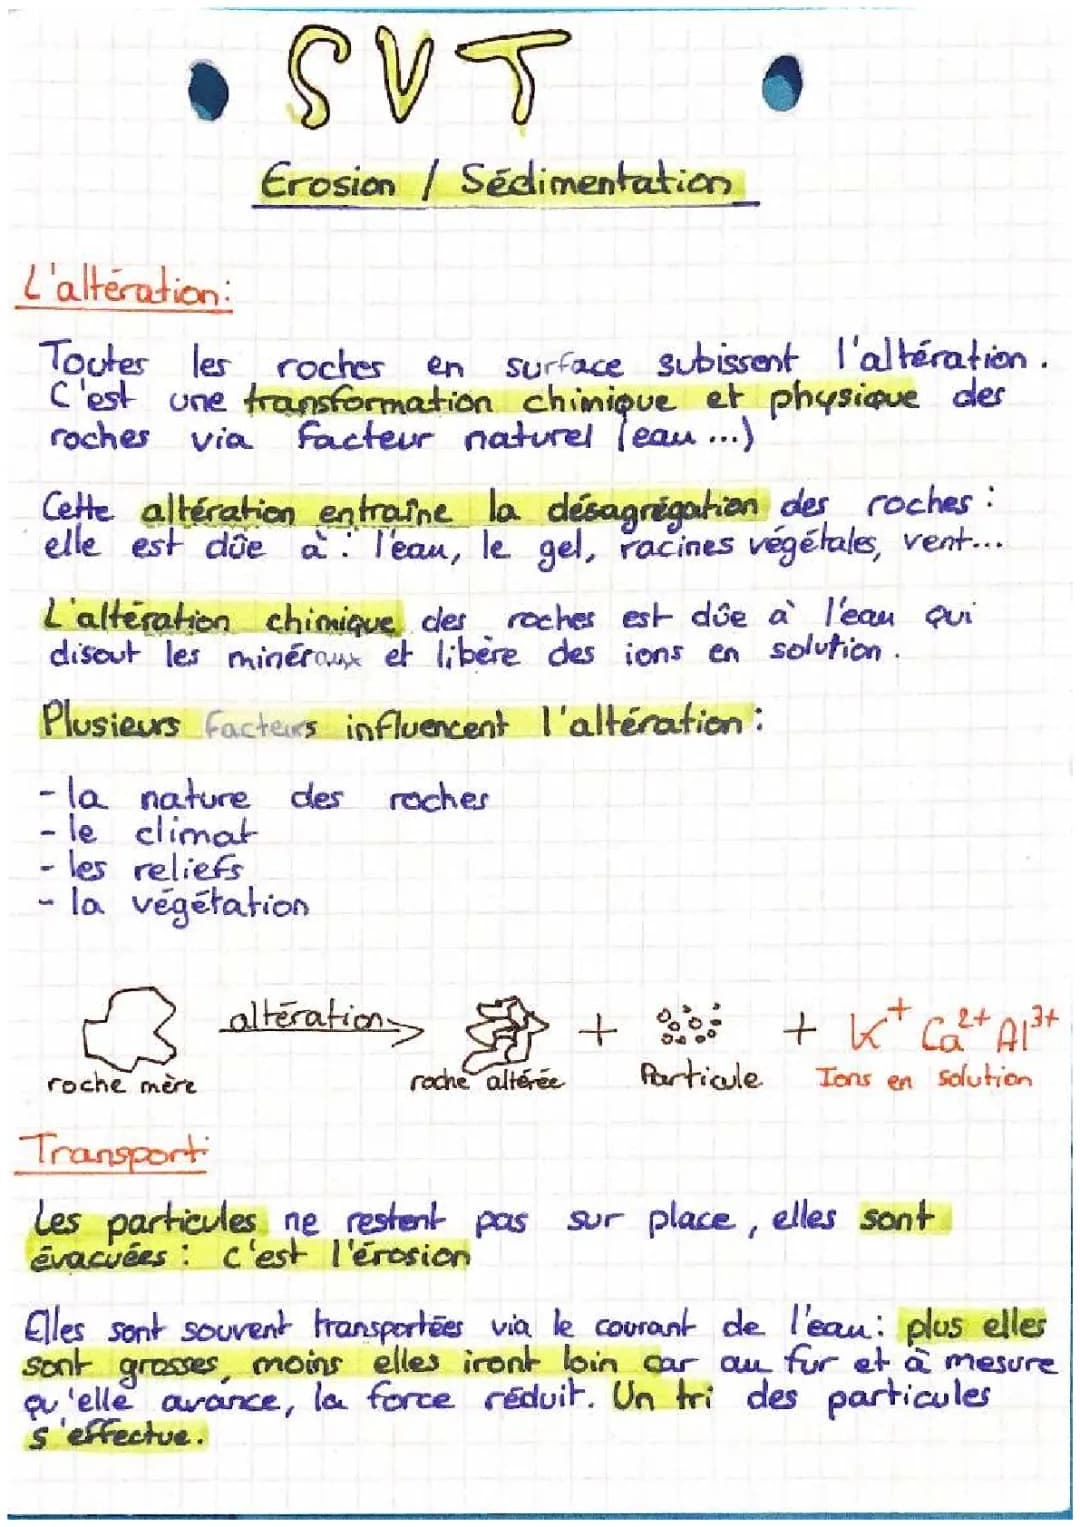 SVT
Erosion / Sédimentation
L'altération:
Toutes les roches en surface subissent l'altération.
C'est une transformation chimique et physique des
roches via facteur naturel (eau...)
Cette altération entraîne la désagrégation des roches :
elle est dûe à : l'eau, le gel, racines végétales, vent...
L'altération chimique des roches est dûe à l'eau qui
disout les minéraux et libère des ions en solution.
Plusieurs facteurs influencent l'altération :
- la nature des roches
- le climat
- les reliefs
- la végétation
altération + + K+ Ca2+ Al3+
roche mère roche altérée Particule Ions en solution
Transport:
Les particules ne restent pas sur place, elles sont
évacuées : c'est l'érosion
Elles sont souvent transportées via le courant de l'eau: plus elles
sont grosses, moins elles iront loin car au fur et à mesure
qu'elle avance, la force réduit. Un tri des particules
s'effectue.